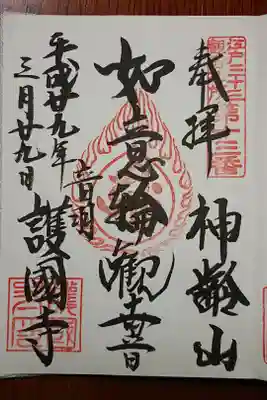 江戸三十三
観音第十三番
奉拝
神齢山
如意輪観世音
平成廿九年
三月廿九日
音羽
護國寺